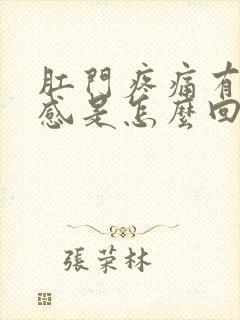 肛門疼痛有
感是怎麼回
張荣林